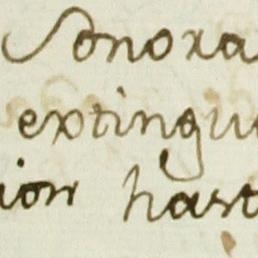 Sonora
extingu
ion hast